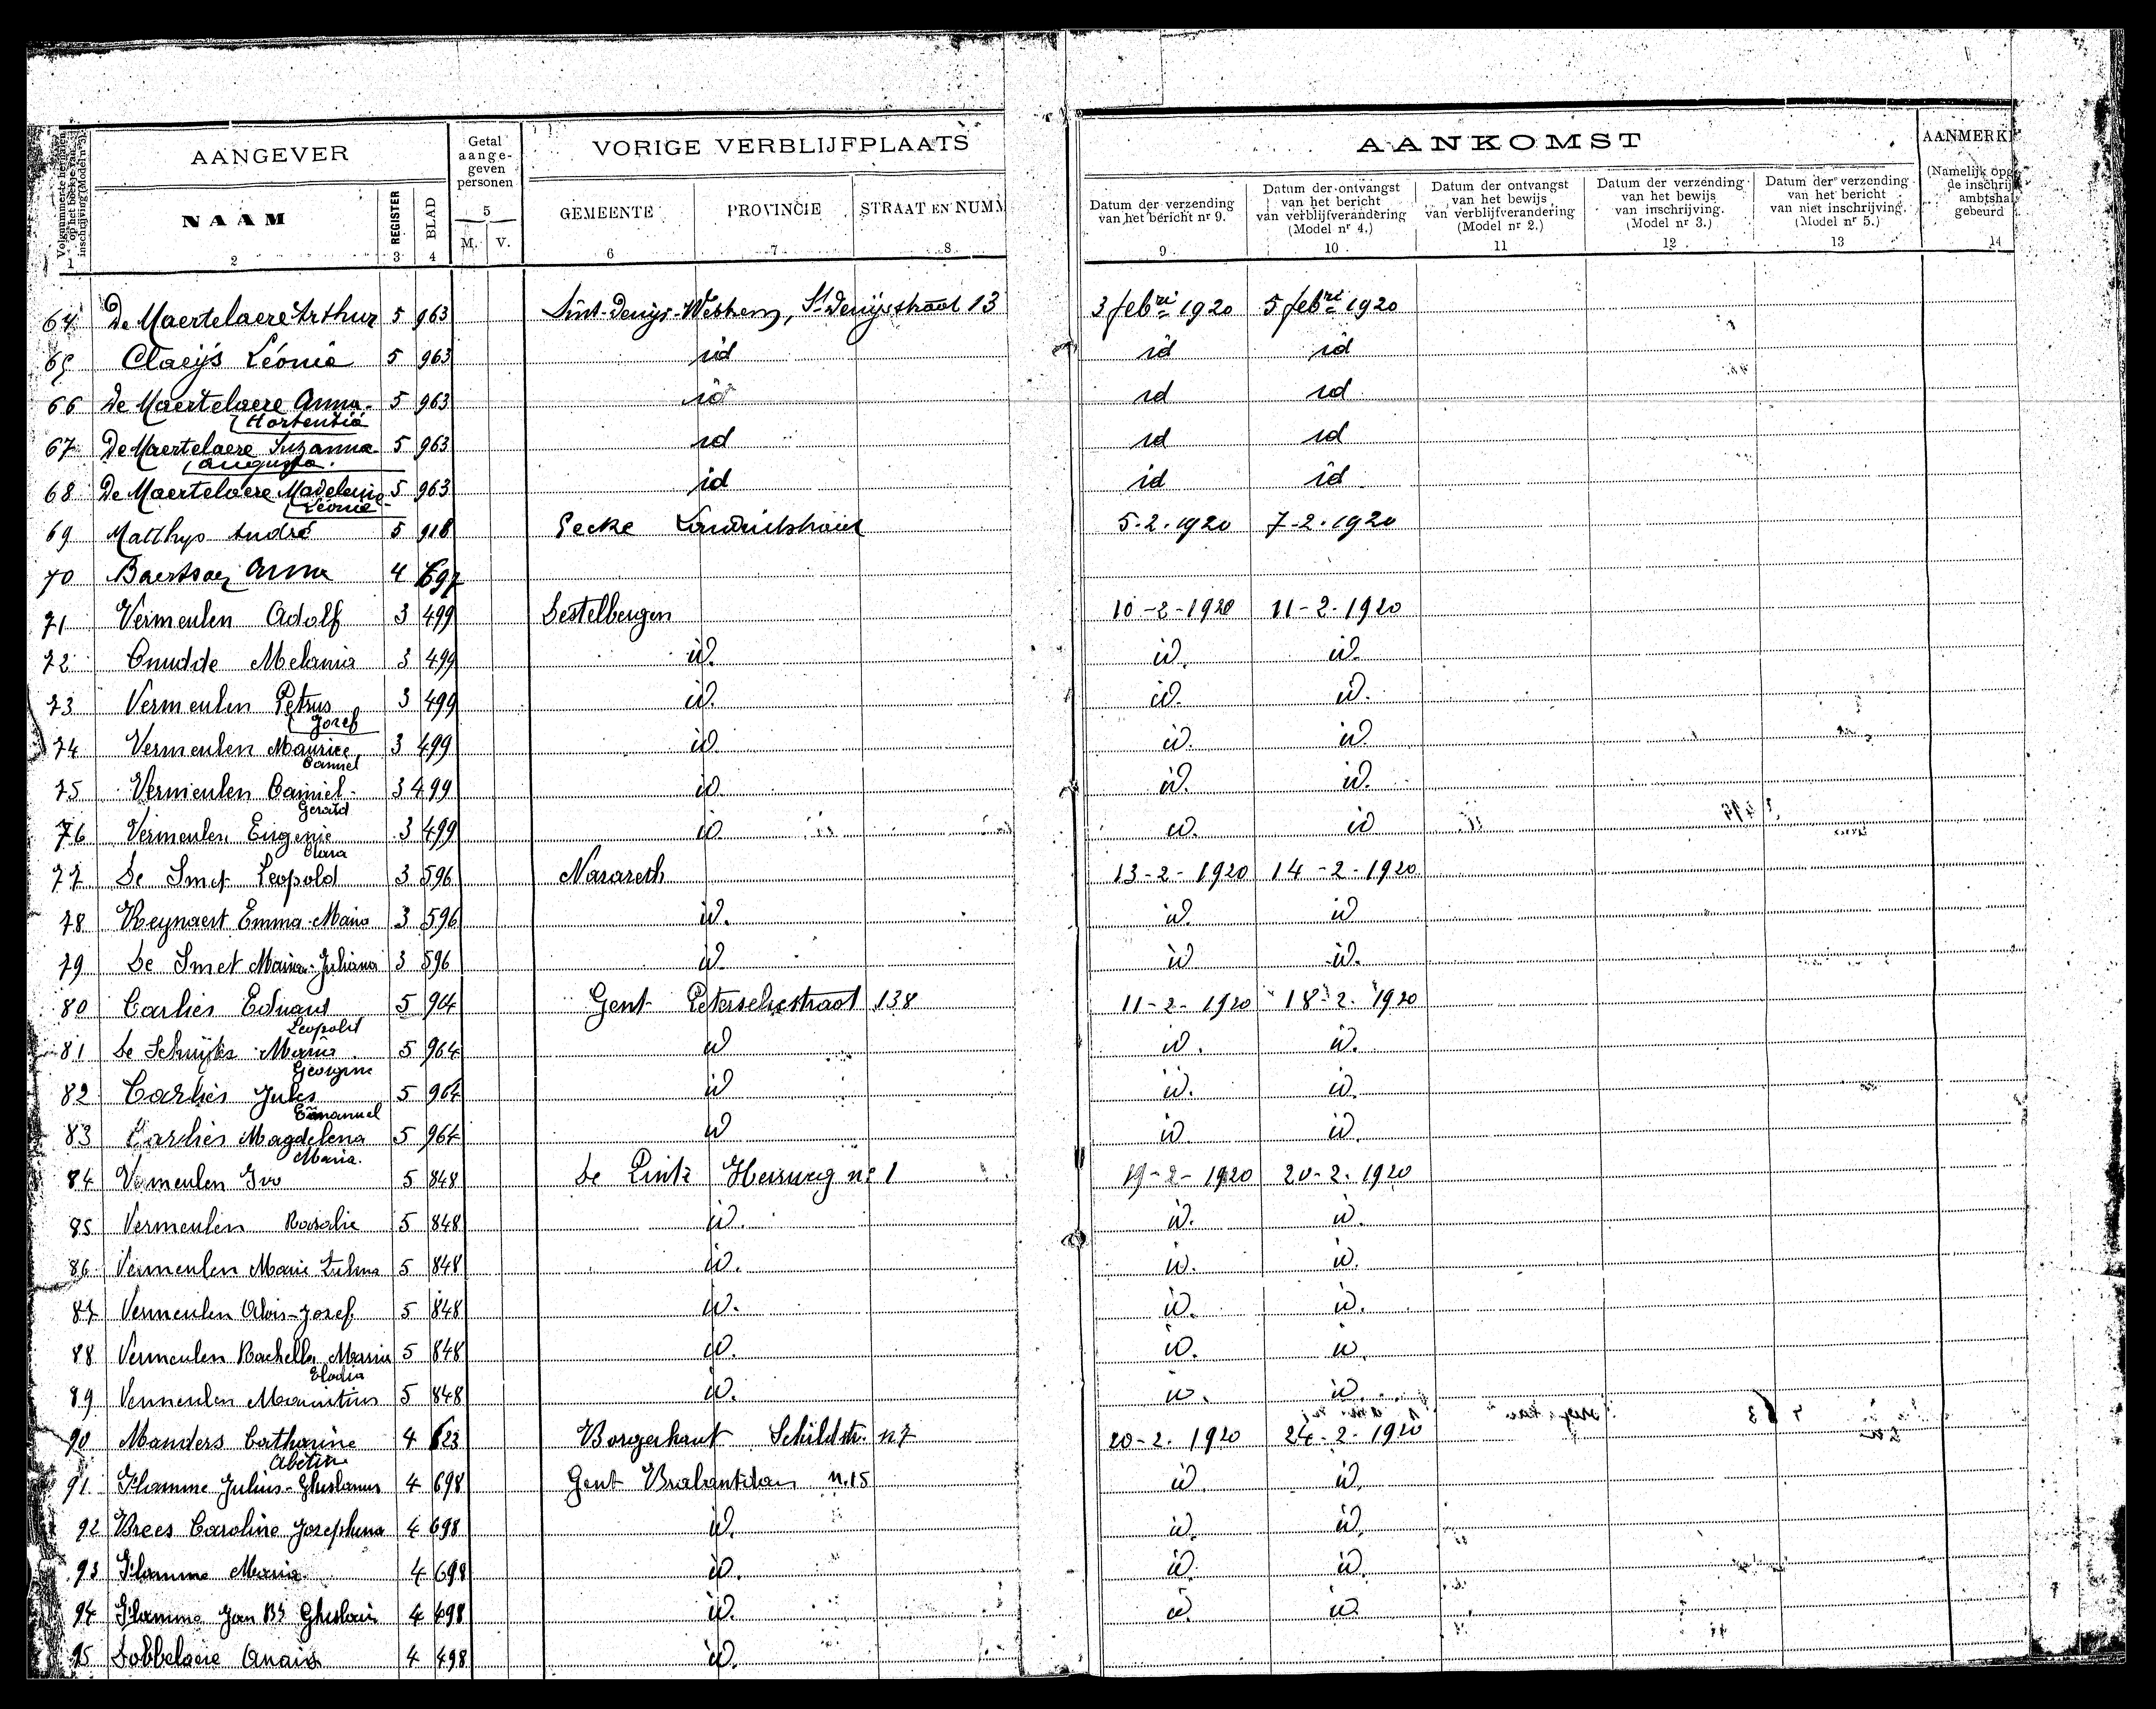 Volgnummer te hernemen op het boekje van inschrijving (Model nr 3).
AANGEVER
Getal aange-geven personen
VORIGE VERBLIJFPLAATS
AANKOMST
AANMERK
NAAM
REGISTER
BLAD
5
M. V.
GEMEENTE
PROVINCIE
STRAAT EN NUMM
Datum der verzending van het bericht nr 9.
Datum der ontvangst van het bericht van verblijfverandering (Model nr 4.)
Datum der ontvangst van het bewijs van verblijfverandering (Model nr 2.)
Datum der verzending van het bewijs van inschrijving. (Model nr 3.)
Datum der verzending van het bericht van niet inschrijving. (Model nr 5.)
(Namelijk opg de inschrij ambtsha gebeurd
1 2 3 4 6 7 8 9 10 11 12 13 14
64 De Maertelaere Arthur 5 963 Sint-Denijs-Westrem, St Denijsstraat 13 3 febri 1920 5 febri 1920
65 Claeijs Léonie 5 963 id id id
66 De Maertelaere Anna 5 963 id id id
Hortentia
67 De Maertelaere Suzanna 5 963 id id id
Augusta
68 De Maertelaere Madeleine 5 963 id id id
Léonie
69 Matthys André 5 918 Eecke 5-2-1920 7-2-1920
70 Baertsoen Anna 4 697
71 Vermeulen Adolf 3 499 Destelbergen 10-2-1920 11-2-1920
72 Cnudde Melania 3 499 id. id. id.
73 Vermeulen Petrus 3 499 id. id. id.
Jozef
74 Vermeulen Maurice 3 499 id. id. id.
Camiel
75 Vermeulen Camiel 3 499 id. id. id.
Gerard
76 Vermeulen Eugenie 3 499 id. id. id
Clara
77 De Smet Leopold 3 596 Nazareth 13-2-1920 14-2-1920
78 Reynaert Emma Maria 3 596 id. id. id
79 De Smet Maria-Juliana 3 596 id. id id.
80 Carlier Eduard 5 964 Gent 138 11-2-1920 18-2-1920
Leopold
81 De Schuyter Maria 5 964 id id. id.
Georgine
82 Carlier Jules 5 964 id id. id.
Emmanuel
83 Carlier Magdelena 5 964 id id. id.
Maria
84 Vermeulen Ivo 5 848 De Pinte Heirweg nr 1 19-2-1920 20-2-1920
85 Vermeulen Rosalie 5 848 id. id. id.
86 Vermeulen Marie Zulma 5 848 id. id. id.
87 Vermeulen Alois-Jozef 5 848 id. id. id.
88 Vermeulen Rachella Maria 5 848 id. id. id.
Elodia
89 Vermeulen Mauritius 5 848 id. id. id.
90 Manders Catharine 4 623 Borgerhout Schildstr. n 7 20-2-1920 24-2-1920
91 Flamme Julius-Ghislanus 4 698 Gent Brabantdam n. 15 id. id.
92 Brees Caroline Josephina 4 698 id. id. id.
93 Flamme Maria 4 698 id. id. id.
94 Flamme Jan Bt Ghislain 4 498 id. id. id.
95 Dobbelaere Anaïs 4 498 id.